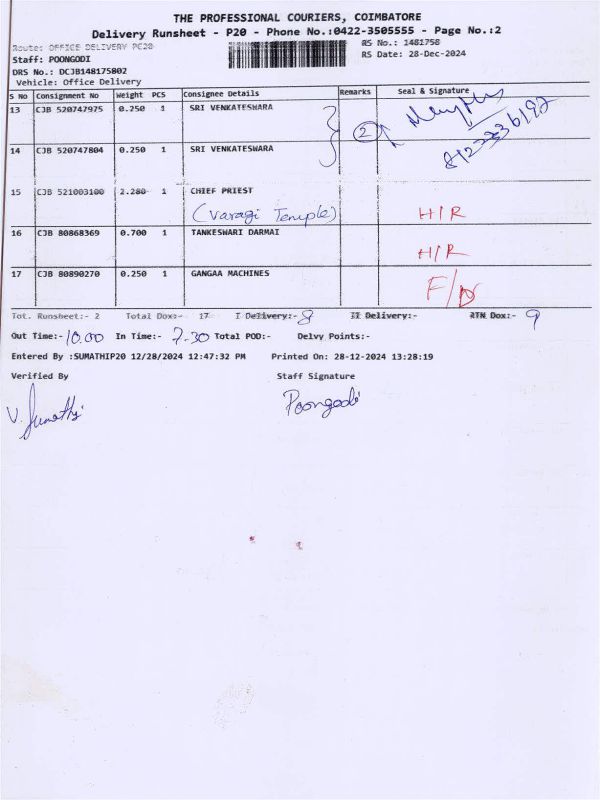 THE PROFESSIONAL COURIERS, COIMBATORE
Delivery Runsheet - P20 - Phone No.:0422-3505555 - Page No.:2
Route: OFFICE DELIVERY PC20
RS No.: 1481758
Staff: POONGODI
RS Date: 28-Dec-2024
DRS No.: DCJB148175802
Vehicle: Office Delivery
S No Consignment No Weight PCS Consignee Details Remarks Seal & Signature
13 CJB 520747975 0.250 1 SRI VENKATESWARA
2
14 CJB 520747804 0.250 1 SRI VENKATESWARA
15 CJB 521003100 2.280 1 CHIEF PRIEST
(Varagi Temple) H/R
16 CJB 80868369 0.700 1 TANKESWARI DARMAI
H/R
17 CJB 80890270 0.250 1 GANGAA MACHINES
F/D
Tot. Runsheet:- 2 Total Dox:- 17 I Delivery:- 8 II Delivery:- RTN Dox:- 9
Out Time:- 10.00 In Time:- 7.30 Total POD:- Delvy Points:-
Entered By :SUMATHIP20 12/28/2024 12:47:32 PM Printed On: 28-12-2024 13:28:19
Verified By Staff Signature
V. Sumathi Poongodi